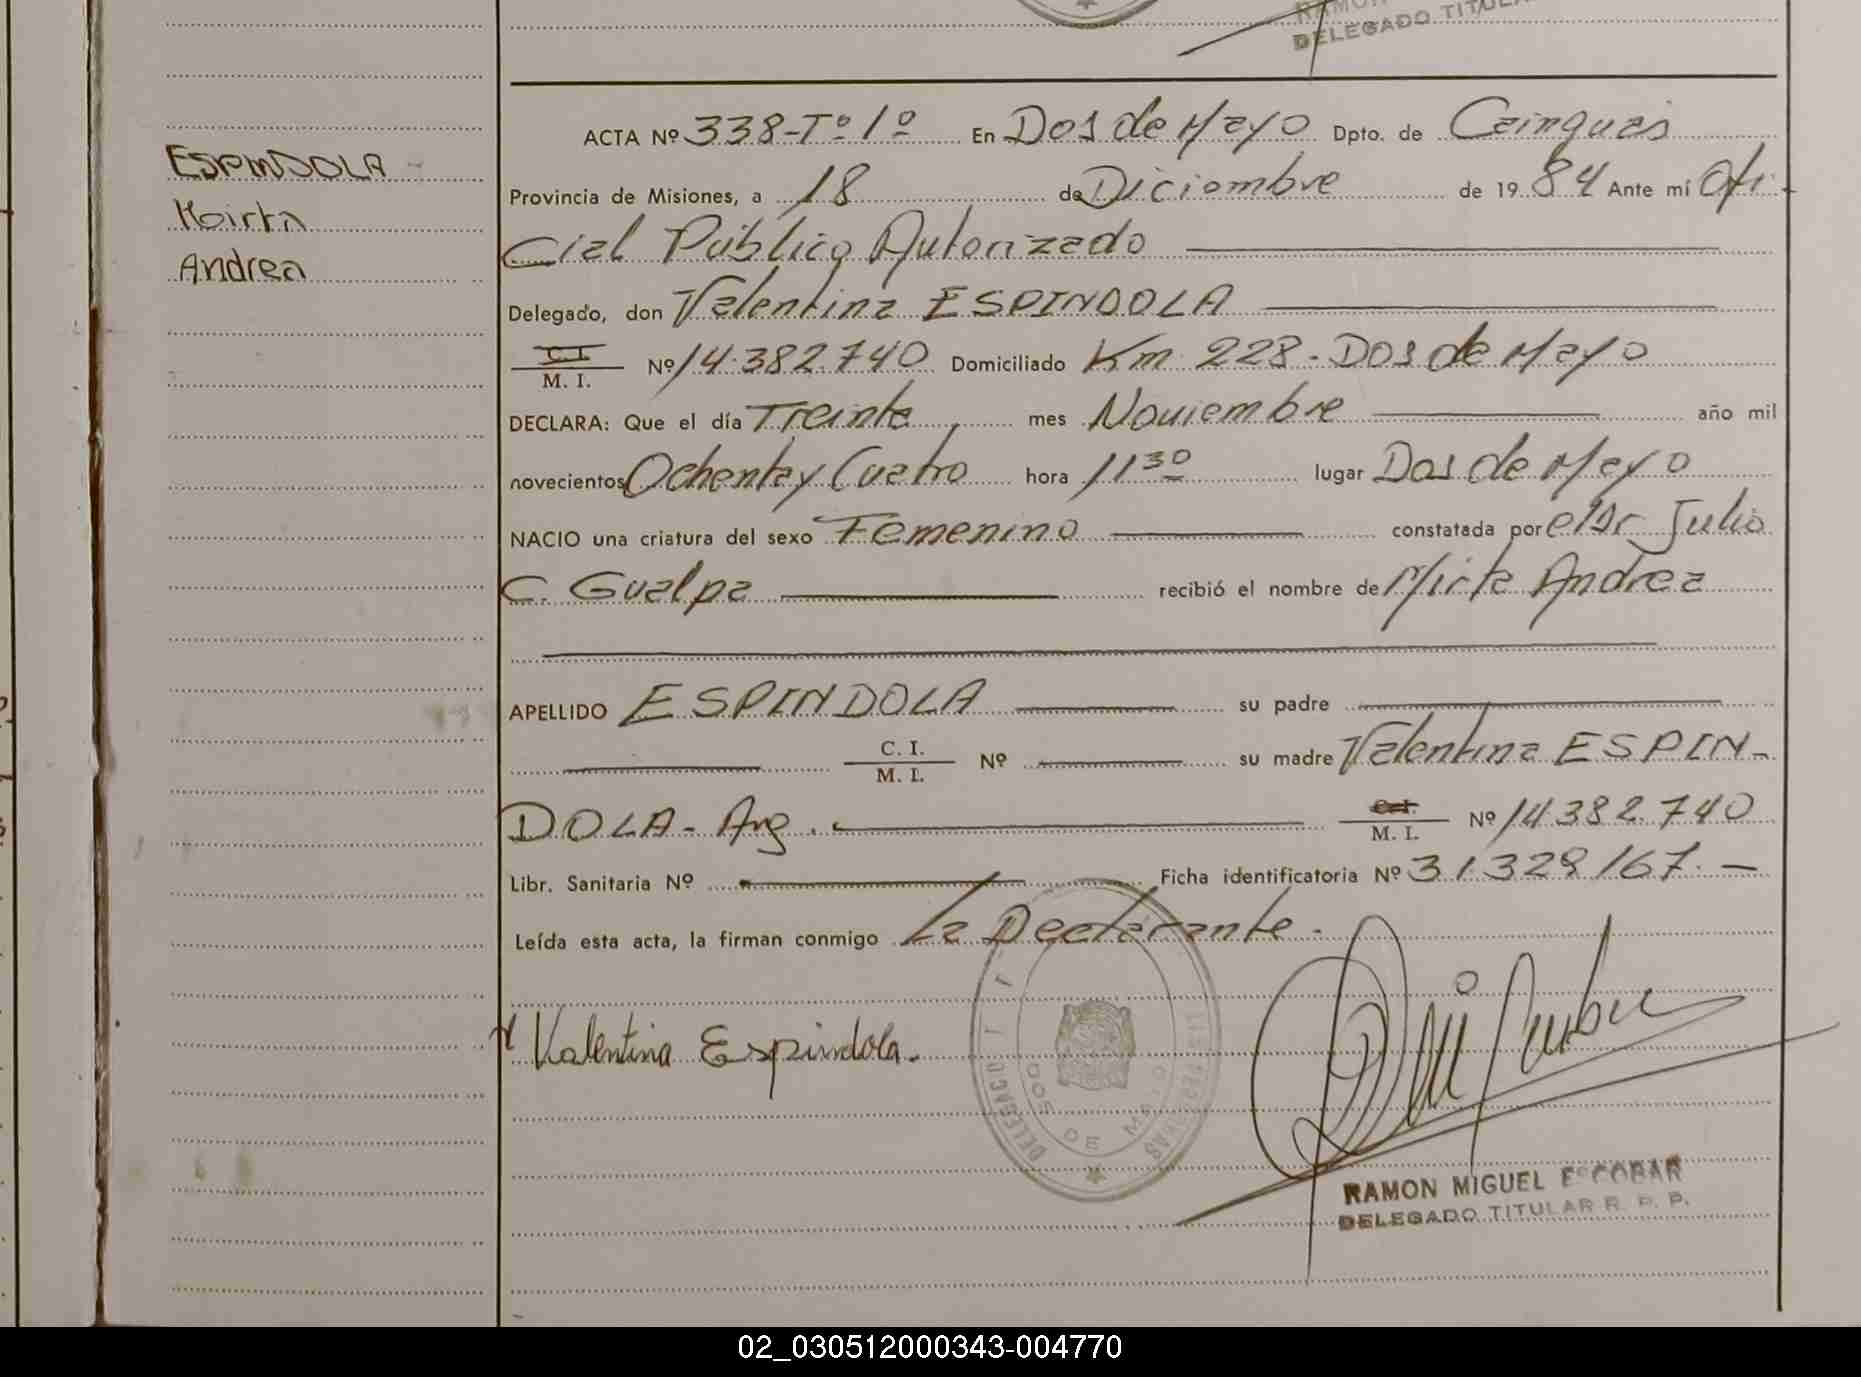 RAMON
DELEGADO TITULAR
ESPINDOLA
Mirta
Andrea
ACTA Nº 338-Tº 1º En Dos de Mayo Dpto. de Cainguas
Provincia de Misiones, a 18 de Diciembre de 1984 Ante mí Ofi
cial Público Autorizado
Delegado, don Valentina ESPINDOLA
C. I.
M. I. Nº 14.382.740 Domiciliado Km. 228 - Dos de Mayo
DECLARA: Que el día Treinta mes Noviembre año mil
novecientos Ochenta y Cuatro hora 11 30 lugar Dos de Mayo
NACIO una criatura del sexo Femenino constatada por el Dr Julio
C. Gualpa recibió el nombre de Mirta Andrea
APELLIDO ESPINDOLA su padre
C. I.
M. I. Nº su madre Valentina ESPIN-
DOLA - Arg. C. I.
M. I. Nº 14.382.740
Libr. Sanitaria Nº Ficha identificatoria Nº 31.329.167.-
Leída esta acta, la firman conmigo La Declarante.
Valentina Espindola.
DOS DE MAYO
RAMON MIGUEL ESCOBAR
DELEGADO TITULAR R. P. P.
02_030512000343-004770